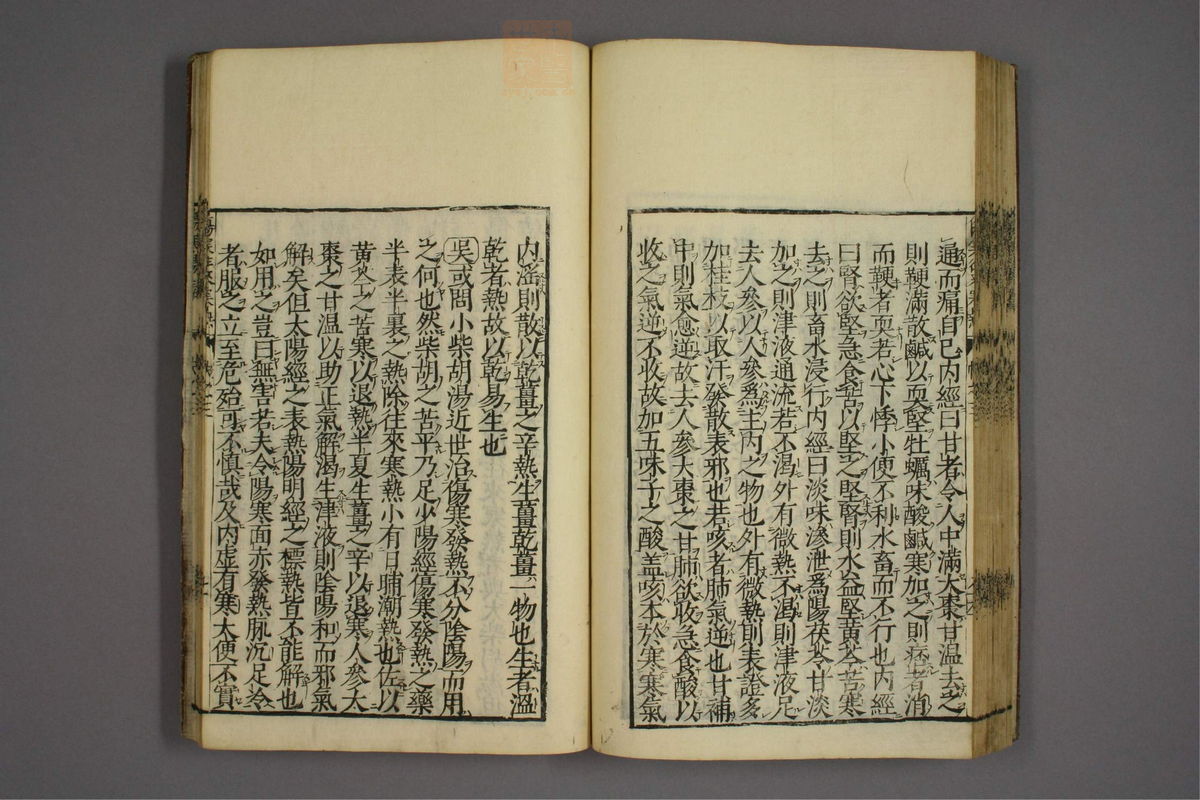 通而痛自已内經曰甘者令人中滿大棗甘温去之
則鞕滿故鹹以耎堅牡蠣味酸鹹寒加之則痞者消
而鞕者耎若心下悸小便不利水畜而不行也内經
曰腎欲堅急食苦以堅之堅腎則水益堅黄芩苦寒
去之則畜水浸行内經曰淡味滲泄爲陽茯苓甘淡
加之則津液通流若不渴外有微熱不渴則津液足
去人參以人參爲主内之物也外有微熱則表證多
加桂枝以取汗發散表邪也若咳者肺氣逆也甘補
中則氣愈逆故去人參大棗之甘肺欲收急食酸以
收之氣逆不收故加五味子之酸盖咳本於寒寒氣
内滛則散以乾薑之辛熱生薑乾薑一物也生者温
乾者熱故以乾易生也
吳或問小柴胡湯近世治傷寒發熱不分陰陽而用
之何也然柴胡之苦平乃足少陽經傷寒發熱之藥
半表半裏之熱除徃來寒熱小有日晡潮熱也佐以
黄芩之苦寒以退熱半夏生薑之辛以退寒人參大
棗之甘温以助正氣解渴生津液則陰陽和而邪氣
解矣但太陽經之表熱陽明經之標熱皆不能解也
如用之豈曰無害若夫令陽寒面赤發熱脉沉足冷
者服之立至危殆可不慎哉及内虚有寒大便不實